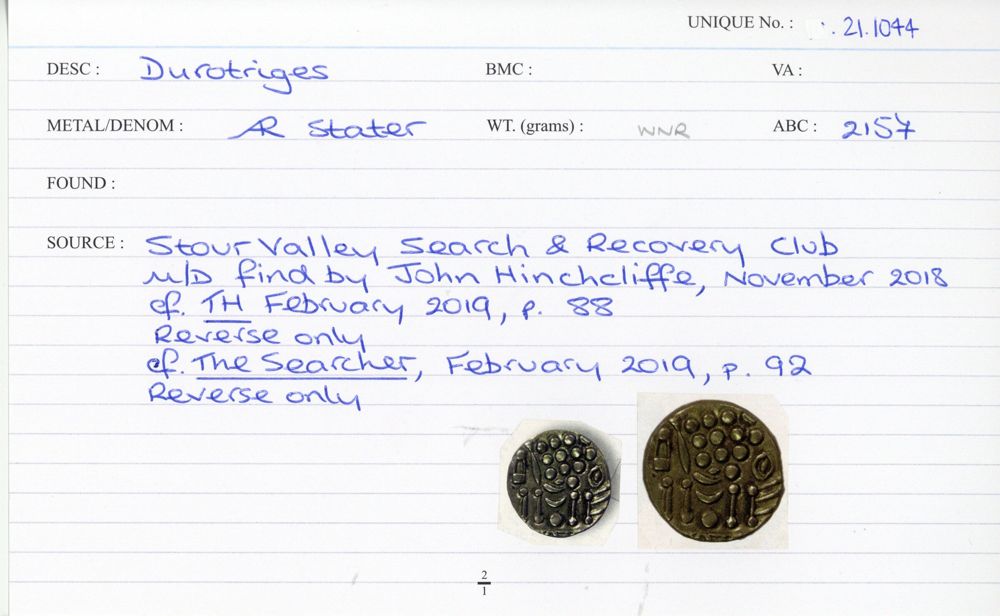 UNIQUE No. : 21.1044
DESC : Durotriges BMC : VA :
METAL/DENOM : AR Stater WT. (grams) : WNR ABC : 2157
FOUND :
SOURCE : Stour Valley Search & Recovery Club
M/D find by John Hinchcliffe, November 2018
cf. TH February 2019, p. 88
Reverse only
cf. The Searcher, February 2019, p. 92
Reverse only
2
1